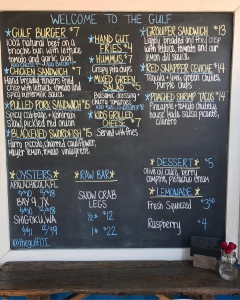 WELCOME TO THE GULF
GULF BURGER $7
100% natural beef on a
brioche bun with lettuce
tomato and garlic aioli
CHICKEN SANDWICH $7
Hand breaded tenders and
crisp with lettuce, tomato and
spicy mustard sauce
PULLED PORK SANDWICH $5
Spicy cabbage, Kohlrabi
slaw, pickled red onion
BLACKENED SWORDFISH $15
Farro piccolo, charred cauliflower,
meyer lemon, tomato vinaigrette
HAND CUT
FRIES $4
HUMMUS $7
Crispy pita chips
MIXED GREEN
SALAD
Balsamic dressing
cherry tomatoes
KIDS GRILLED
CHEESE
Served with fries
GROUPER SANDWICH $13
Lightly breaded and fried crisp
with lettuce, tomato and our
lemon dill sauce
RED SNAPPER CEVICHE $14
Tequila + lime, green chilies,
purple chips
POACHED SHRIMP TACOS $14
Pineapple + tomato chutney,
house made salsa picante,
cilantro
OYSTERS
APALACHICOLA, FL
BAY 9, JX
SHIGOKU, WA
@thegulfOI
RAW BAR
SNOW CRAB
LEGS
½ # $12
1 # $22
DESSERT $5
Olive oil cake, berry
compote, pistachio cream
LEMONADE
Fresh Squeezed $3.50
Raspberry $4